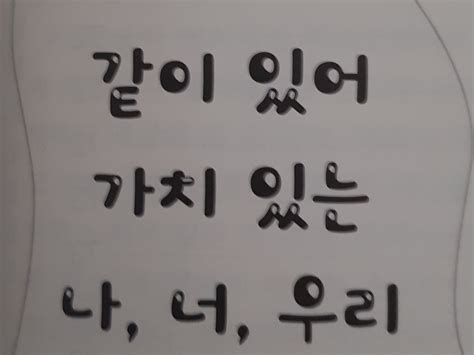 같이 있어
가치 있는
나, 너, 우리